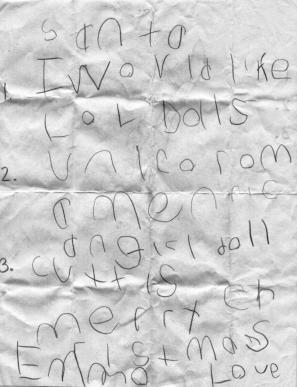 santa
I Would like
1. LOL balls
2. unicorom
americ
angirl doll
3. cuttis
merry
Emma
Love